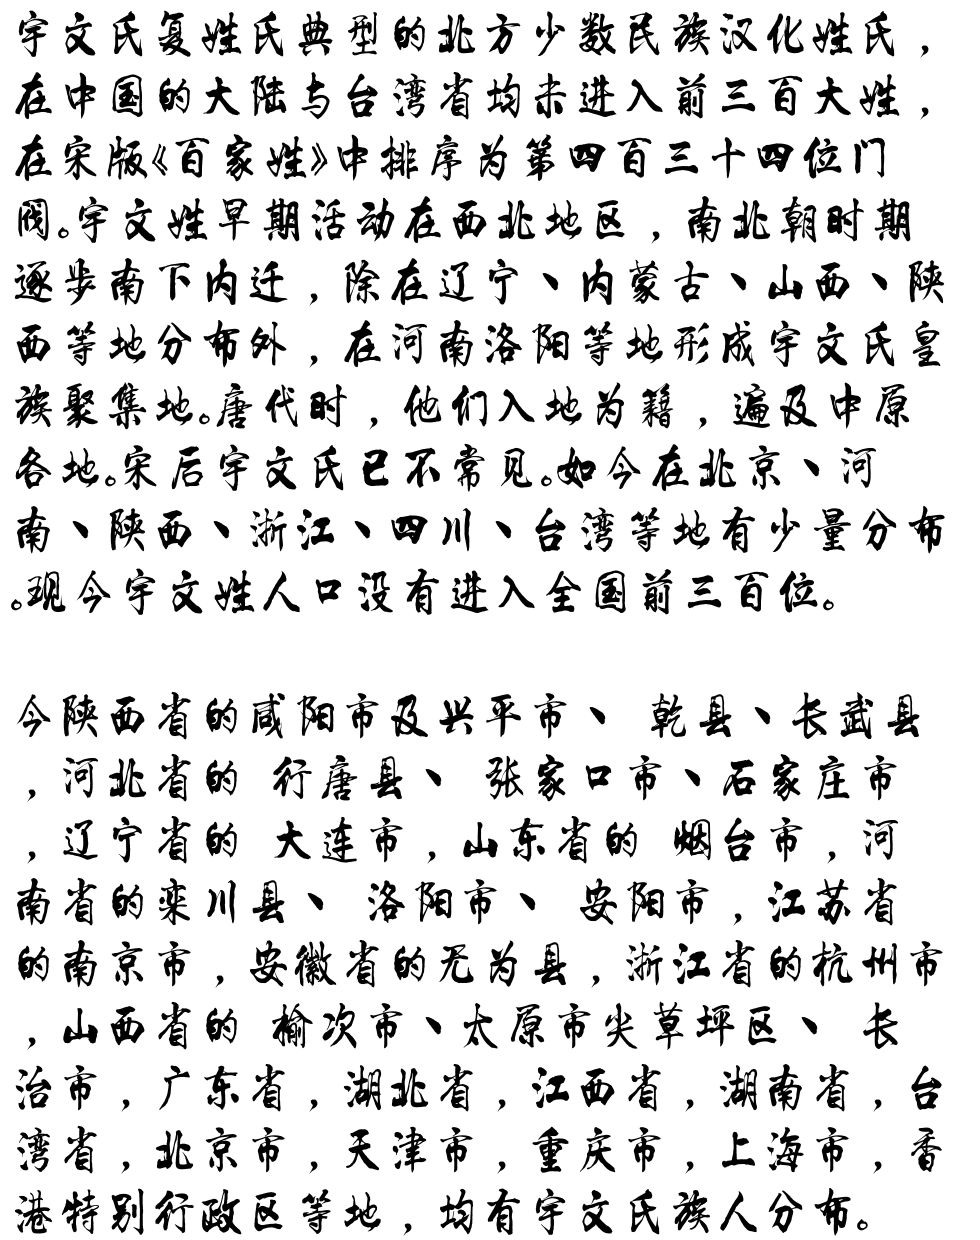 宇文氏复姓氏典型的北方少数民族汉化姓氏，
在中国的大陆与台湾省均未进入前三百大姓，
在宋版《百家姓》中排序为第四百三十四位门
阀。宇文姓早期活动在西北地区，南北朝时期
逐步南下内迁，除在辽宁、内蒙古、山西、陕
西等地分布外，在河南洛阳等地形成宇文氏皇
族聚集地。唐代时，他们入地为籍，遍及中原
各地。宋后宇文氏已不常见。如今在北京、河
南、陕西、浙江、四川、台湾等地有少量分布
。现今宇文姓人口没有进入全国前三百位。
今陕西省的咸阳市及兴平市、 乾县、长武县
，河北省的 行唐县、 张家口市、石家庄市
，辽宁省的 大连市，山东省的 烟台市，河
南省的栾川县、 洛阳市、 安阳市，江苏省
的南京市，安徽省的无为县，浙江省的杭州市
，山西省的 榆次市、太原市尖草坪区、 长
治市，广东省，湖北省，江西省，湖南省，台
湾省，北京市，天津市，重庆市，上海市，香
港特别行政区等地，均有宇文氏族人分布。